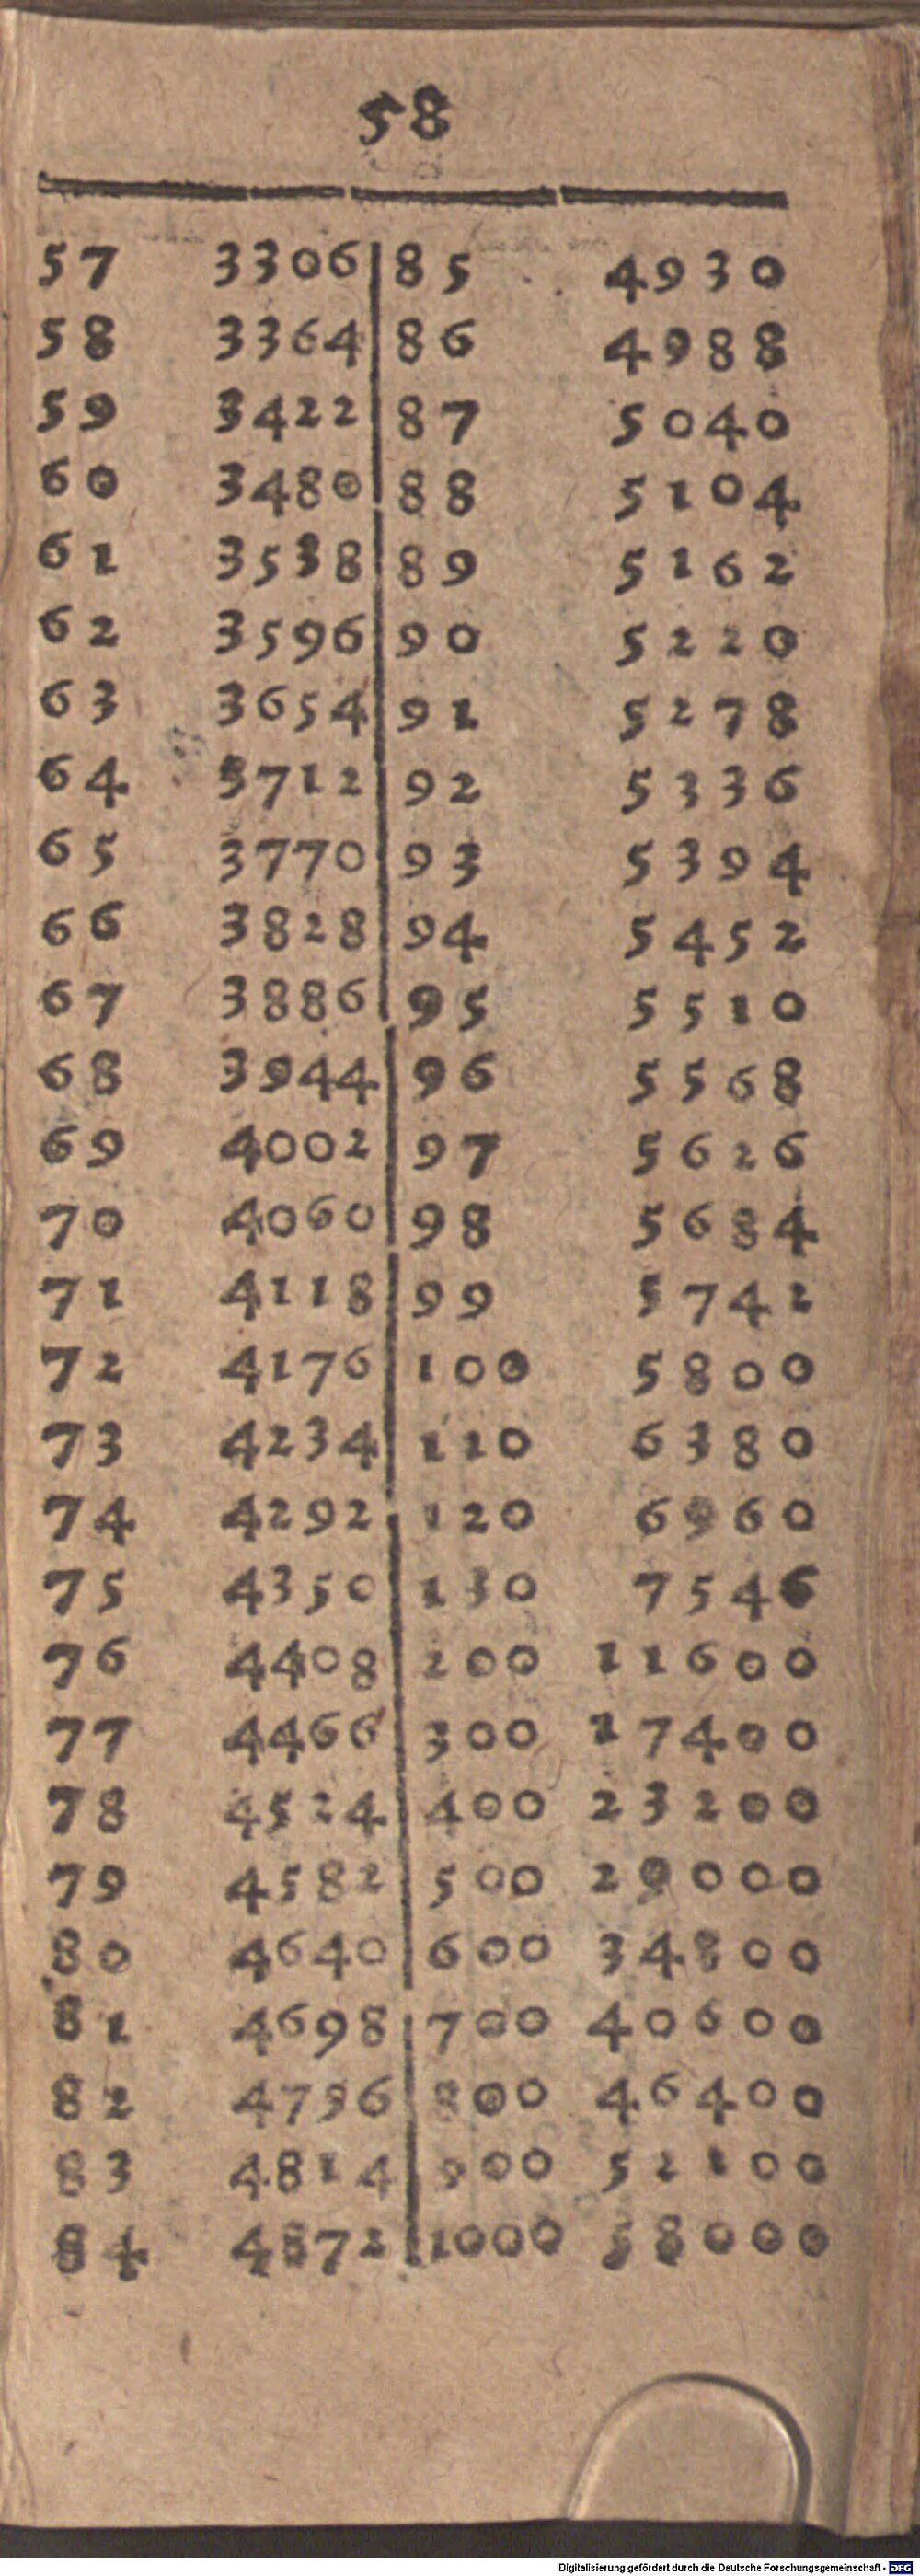 58
57 3306 85 4930
58 3364 86 4988
59 3422 87 5040
60 3480 88 5104
61 3538 89 5162
62 3596 90 5220
63 3654 91 5278
64 3712 92 5336
65 3770 93 5394
66 3828 94 5452
67 3886 95 5510
68 3944 96 5568
69 4002 97 5626
70 4060 98 5684
71 4118 99 5742
72 4176 100 5800
73 4234 110 6380
74 4292 120 6960
75 4350 130 7546
76 4408 200 11600
77 4466 300 17400
78 4524 400 23200
79 4582 500 29000
80 4640 600 34800
81 4698 700 40600
82 4756 800 46400
83 4814 900 52200
84 4872 1000 58000
Digitalisierung gefördert durch die Deutsche Forschungsgemeinschaft - DFG